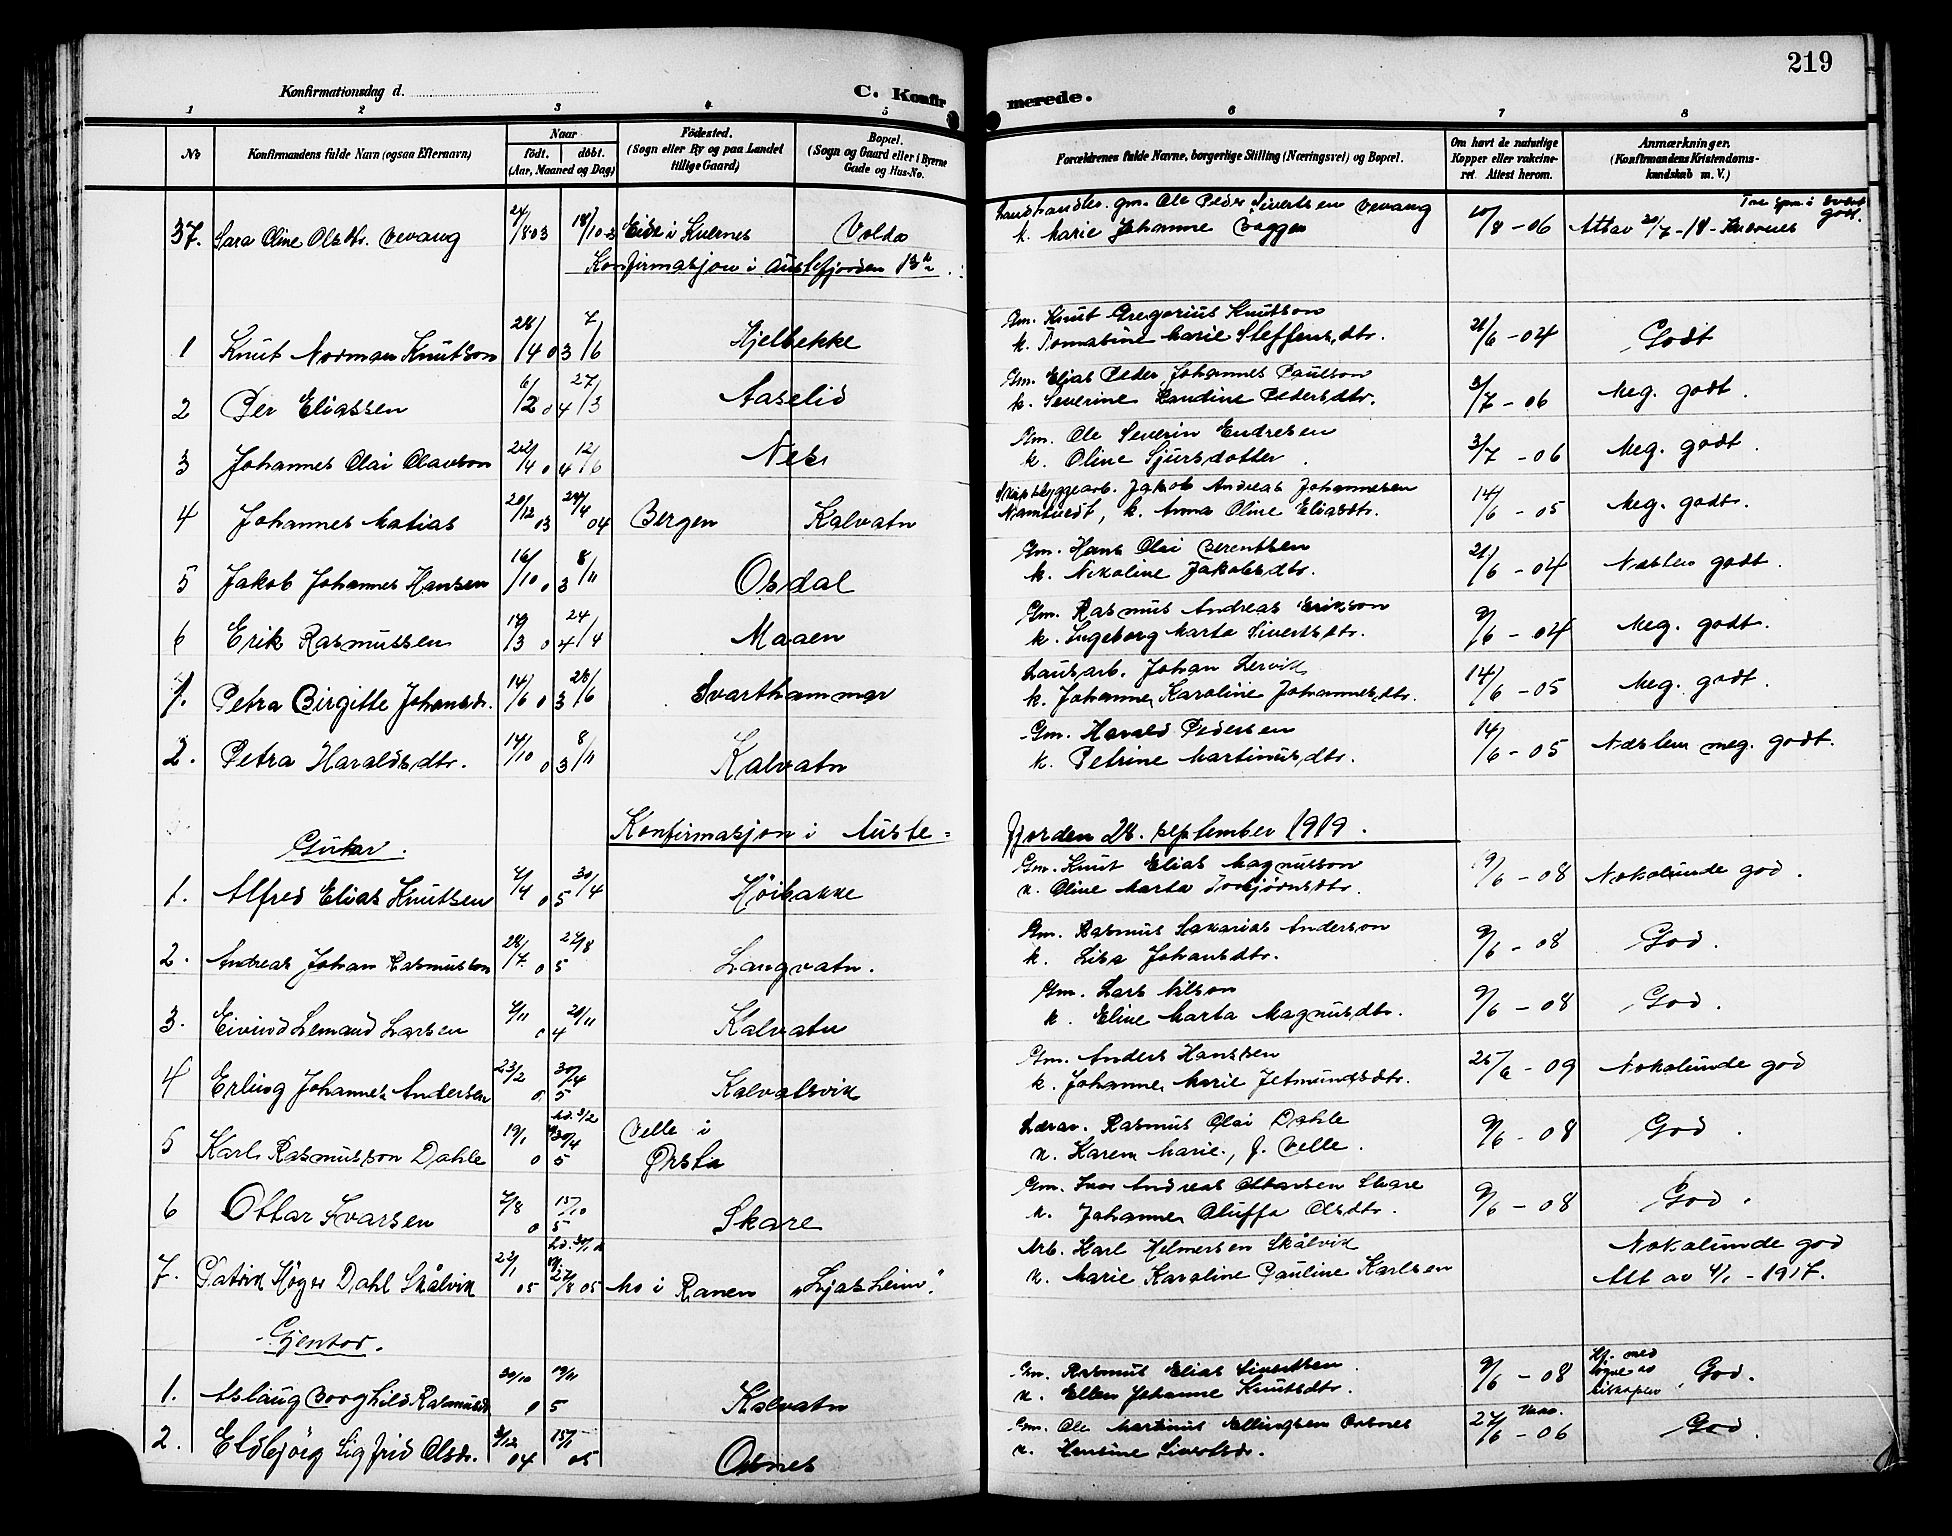 219
Konfirmationsdag d.
C. Konfirmerede.
1 2 3 4 5 6 7 8
No
Konfirmandens fulde Navn (ogsaa Efternavn)
Naar
født. døbt.
(Aar, Maaned og Dag)
Födested.
(Sogn eller By og paa Landet
tillige Gaard)
Bopæl.
(Sogn og Gaard eller i Byerne
Gade og Hus-No.
Forældrenes fulde Navne, borgerlige Stilling (Næringsvei) og Bopæl.
Om havt de naturlige
Kopper eller vakcine-
ret. Attest herom.
Anmærkninger.
(Konfirmandens Kristendoms-
kundskab m. V.)
37. Sara Oline Olsdtr. Vevang 24/8 03 18/10 03 Eide i Kvernes Volda Landhandler. gm. Ole Peder Sivertsen Vevang
k. Marie Johanne Vaggen 10/8 - 06 Att av 20/7 - 18 - Kvernes godt.
Konfirmasjon i Austefjorden
1 Knut Norman Knutson 28/4 03 7/6 Hjelbekke Gm. Knut Gregorius Knutson
k. Tomabine Marie Steffensdtr. 21/6 - 04 Godt
2 Per Eliassen 6/2 04 27/3 Aaselid Gm. Elias Peder Johannes Paulson
k. Severine Landine Pedersdtr. 3/7 - 06 Meg. godt.
3 Johannes Olai Olavson 22/4 04 12/6 Nes Gm. Ole Severin Endresen
k. Oline Sjursdotter. 3/7 - 06 Meg. godt.
4 Johannes Matias 20/12 03 24/4 04 Bergen Kalvatn Skipsbyggearb. Jakob Andreas Johannesen
k. Anna Oline Eliasdtr. 14/6 - 05 Meg. godt.
5 Jakob Johannes Hansen 16/10 03 8/11 Osdal Gm. Hans Olai Berentsen
k. Nikoline Jakobsdtr. 21/6 - 04 Næsten godt.
6 Erik Rasmussen 19/3 04 24/4 Maaen Gm. Rasmus Andreas Erikson
k. Ingeborg Marta Sivertsdtr. 9/6 - 04 Meg. godt.
1. Petra Birgitte Johansdr. 14/6 03 28/6 Svarthammar Lausarb. Johan Lervik
k. Johanne Karoline Johannesdtr. 14/6 - 05 Meg. godt.
2. Petra Haraldsdtr. 14/10 03 8/11 Kalvatn Gm. Harald Pedersen
k. Petrine Martinusdtr. 14/6 - 05 Næsten meg. godt.
Konfirmasjon i Auste=fjorden 28. september 1919.
Gutar.
1. Alfred Elias Knutsen 4/4 05 30/4 Høibakke Gm. Knut Elias Magnusson
k. Oline Marta Torbjørnsdtr. 9/6 - 08 Nokolunde god.
2. Andreas Johan Rasmusson 28/7 05 27/8 Langvatn. Gm. Rasmus Sakarias Anderson
k. Lisa Johansdtr. 9/6 - 08 God.
3. Eivind Lemand Larsen 4/11 04 20/11 Kalvatn Gm. Lars Nilson
k. Eline Marta Magnusdtr. 9/6 - 08 God.
4 Erling Johannes Andersen 23/2 05 30/4 Kalvatsvik Gm. Anders Hanssen
k. Johanne Marie Jetmundsdtr. 25/6 - 09 Nokolunde god
5 Karl Rasmusson Dahle 19/1 05 30/4 Velle i
Ørsta Lærar. Rasmus Olai Dahle
k. Karen Marie, f. Velle. 9/6 - 08 God.
6 Ottar Ivarsen 7/8 05 15/10 Skare Gm. Ivar Andreas Ottarsen Skare
k. Johanne Oluffa Olsdtr. 9/6 - 08 God.
7. Patrik Høger Dahl Skålvik 22/1 05 27/8 05 Mo i Ranen "Ljosheim". Arb. Karl Helmersen Skålvik
k. Marie Karoline Pauline Karlsen Nokolunde god
Att av 4/1 - 1917.
Gjentor.
1. Aslaug Borghild Rasmusd 20/10 05 19/11 Kalvatn Gm. Rasmus Elias Sivertsen
k. Ellen Johanne Knutsdtr. 9/6 - 08 God.
2. Eldbjörg Sigfrid Olsdr. 3/12 04 15/1 05 Osnes Gm. Ole Martinus Ellingsen Osnes
k. Hansine Sivertsdr. 27/6 - 06 God.